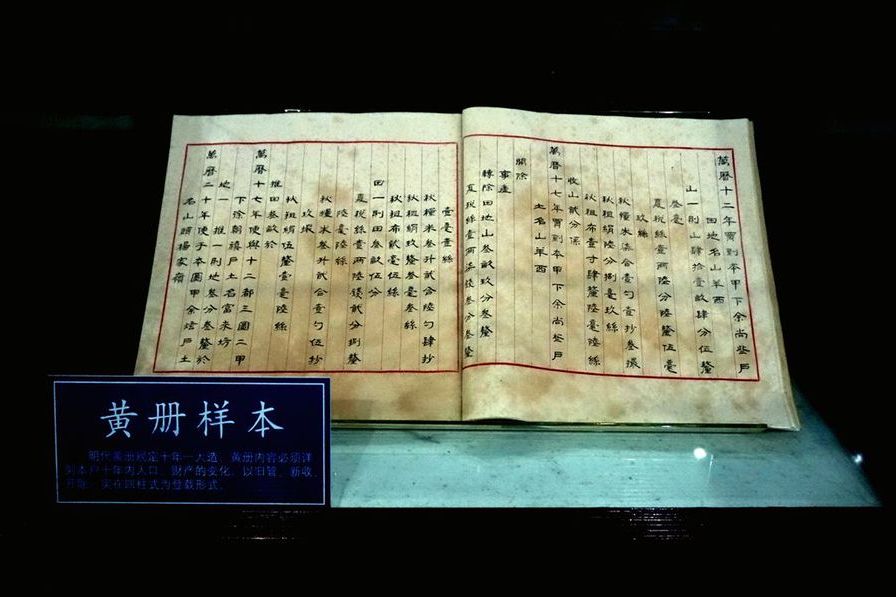 萬曆十二年買到本甲下余尚坒戶
田地名山羊西
山一則山肆拾壹畝肆分伍釐
叁毫
夏税絲壹兩陸分陸釐伍毫
玖絲
秋糧米柒合壹勺壹抄叁撮
秋租絹陸分捌毫叁絲
秋租布壹寸肆釐陸毫陸絲
收山貳分係
萬曆十七年買到本甲下余尚坒戶
土名山羊西
開除
事產
轉除田地山叁畝玖分叁釐
夏税絲壹兩柒錢叁分叁釐
壹毫壹絲
秋糧米叁升貳合陸勺肆抄
秋租絹玖釐叁毫叁絲
秋租布貳毫伍絲
田一則田叁畝伍分
夏税絲壹兩陸錢貳分捌釐
陸毫陸絲
秋糧米叁升貳合壹勺伍抄
玖撮
秋租絹伍釐壹毫陸絲
推田叁畝於
萬曆十七年使與十二都三圖二甲
下徐朝禧戶土名富來坊
地一則地叁分叁釐於
萬曆二十年使于本圖甲余焙戶土
名山頭楊家嶺
黄册样本
明代黄册规定十年一大造，黄册内容必须详
列本户十年内人口、财产的变化，以旧管、新收、
开除、实在四柱式为登载形式。